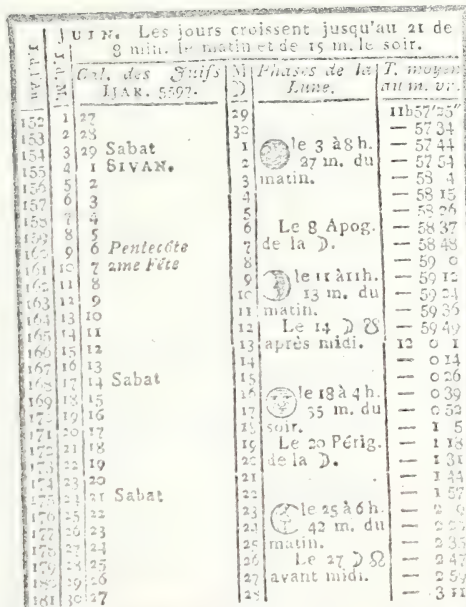 JUIN. Les jours croissent jusqu'au 21 de
8 min. le matin et de 15 m. le soir.
J. d. l'An J. d. M. Cal. des Juifs IJAR. 5597. M ☽ Phases de la Lune. T. moyen au m. vr.
152 1 27 29 11h57'25"
153 2 28 30 — 57 34
154 3 29 Sabat 1 le 3 à 8 h. — 57 44
155 4 1 SIVAN. 2 27 m. du — 57 54
156 5 2 3 matin. — 58 4
157 6 3 4 — 58 15
158 7 4 5 — 58 26
159 8 5 6 Le 8 Apog. — 58 37
160 9 6 Pentecôte 7 de la ☽. — 58 48
161 10 7 2me Fête 8 — 59 0
162 11 8 9 le 11 à 11h. — 59 12
163 12 9 10 13 m. du — 59 24
164 13 10 11 matin. — 59 36
165 14 11 12 Le 14 ☽ ☋ — 59 49
166 15 12 13 après midi. 12 0 1
167 16 13 14 — 0 14
168 17 14 Sabat 15 — 0 26
169 18 15 16 le 18 à 4 h. — 0 39
170 19 16 17 55 m. du — 0 52
171 20 17 18 soir. — 1 5
172 21 18 19 Le 20 Périg. — 1 18
173 22 19 20 de la ☽. — 1 31
174 23 20 21 — 1 44
175 24 21 Sabat 22 — 1 57
176 25 22 23 le 25 à 6 h. — 2 9
177 26 23 24 42 m. du — 2 22
178 27 24 25 matin. — 2 35
179 28 25 26 Le 27 ☽ ☊ — 2 47
180 29 26 27 avant midi. — 2 59
181 30 27 28 — 3 11